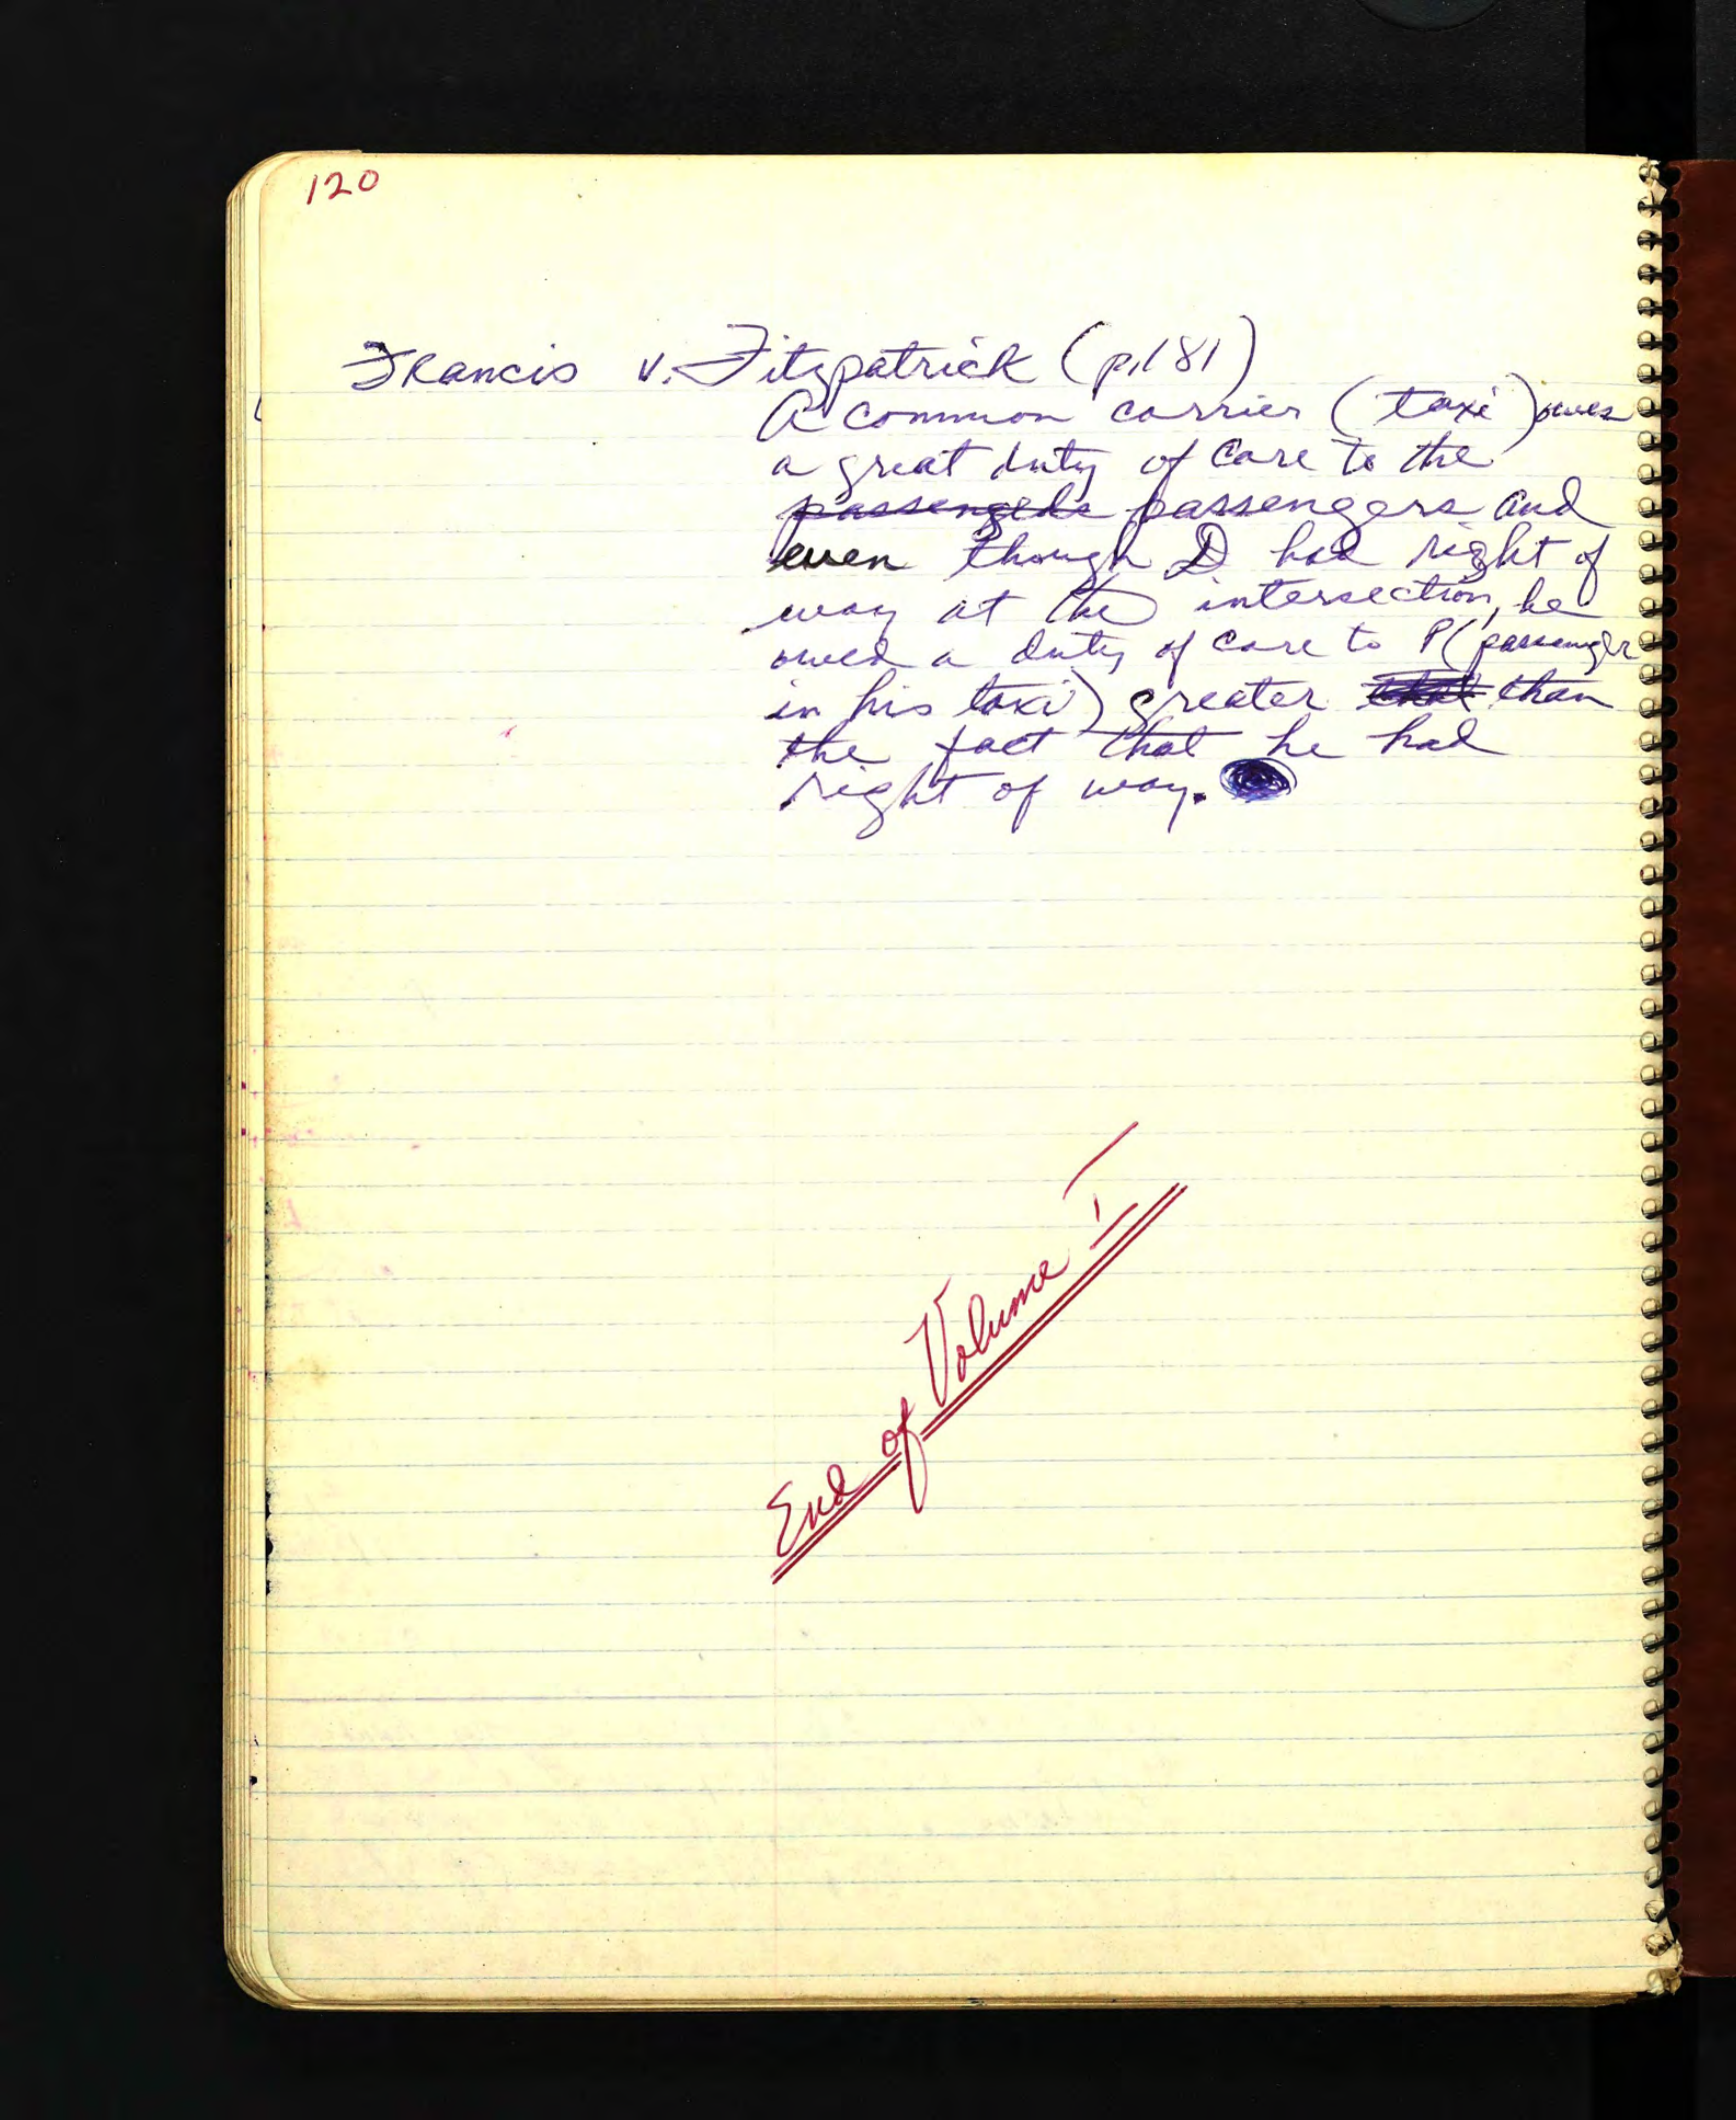 120
Francis v. Fitzpatrick (p.181)
A common carrier (taxi) owes
a great duty of care to the
passengers passengers and
even though D had right of
way at the intersection, he
owed a duty of care to P (passenger
in his taxi) greater that than
the fact that he had
right of way.
End of Volume I